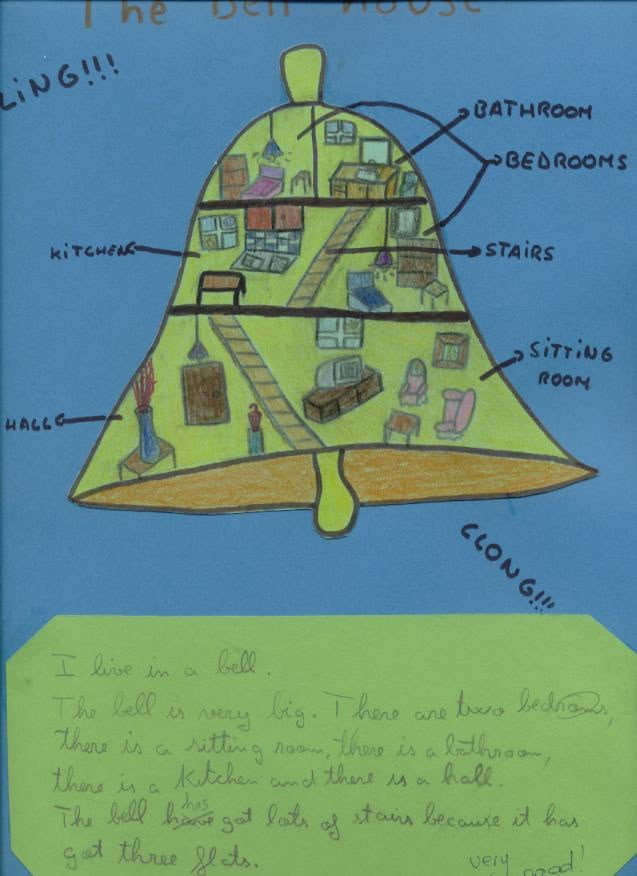 The Bell House
LING!!!
BATHROOM
BEDROOMS
KITCHEN
STAIRS
SITTING
ROOM
HALL
CLONG!!!
I live in a bell.
The bell is very big. There are two bedrooms,
there is a sitting room, there is a bathroom,
there is a kitchen and there is a hall.
has
The bell have got lots of stairs because it has
got three flats.
very good!